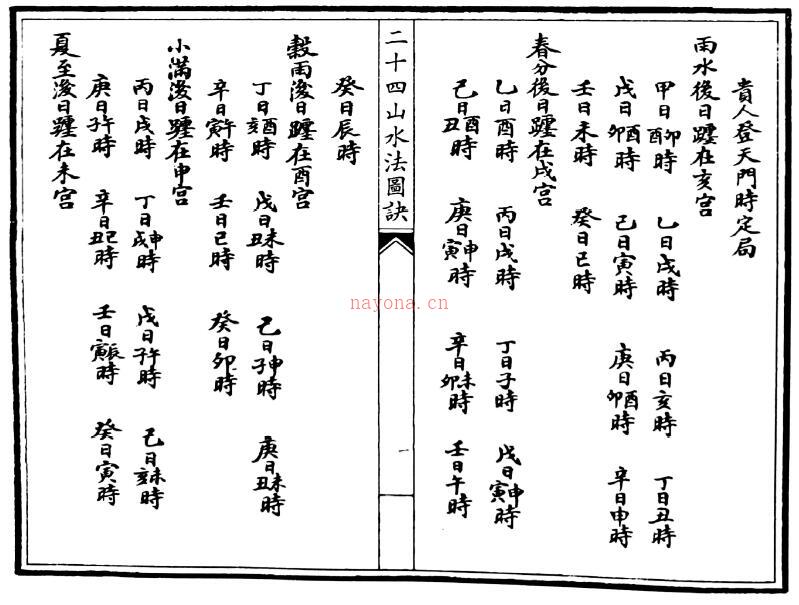 貴人登天門時定局
雨水後日躔在亥宮
甲日卯酉時 乙日戌時 丙日亥時 丁日丑時
戊日酉卯時 己日寅時 庚日酉卯時 辛日申時
壬日未時 癸日巳時
春分後日躔在戌宮
乙日酉時 丙日戌時 丁日子時 戊日申寅時
己日酉丑時 庚日申寅時 辛日未卯時 壬日午時
二十四山水法圖訣
一
癸日辰時
穀雨後日躔在酉宮
丁日酉亥時 戊日未丑時 己日申子時 庚日未丑時
辛日午寅時 壬日巳時 癸日卯時
小滿後日躔在申宮
丙日戌時 丁日申戌時 戊日午子時 己日未亥時
庚日午子時 辛日巳丑時 壬日辰寅時 癸日寅時
夏至後日躔在未宮
nayona.cn